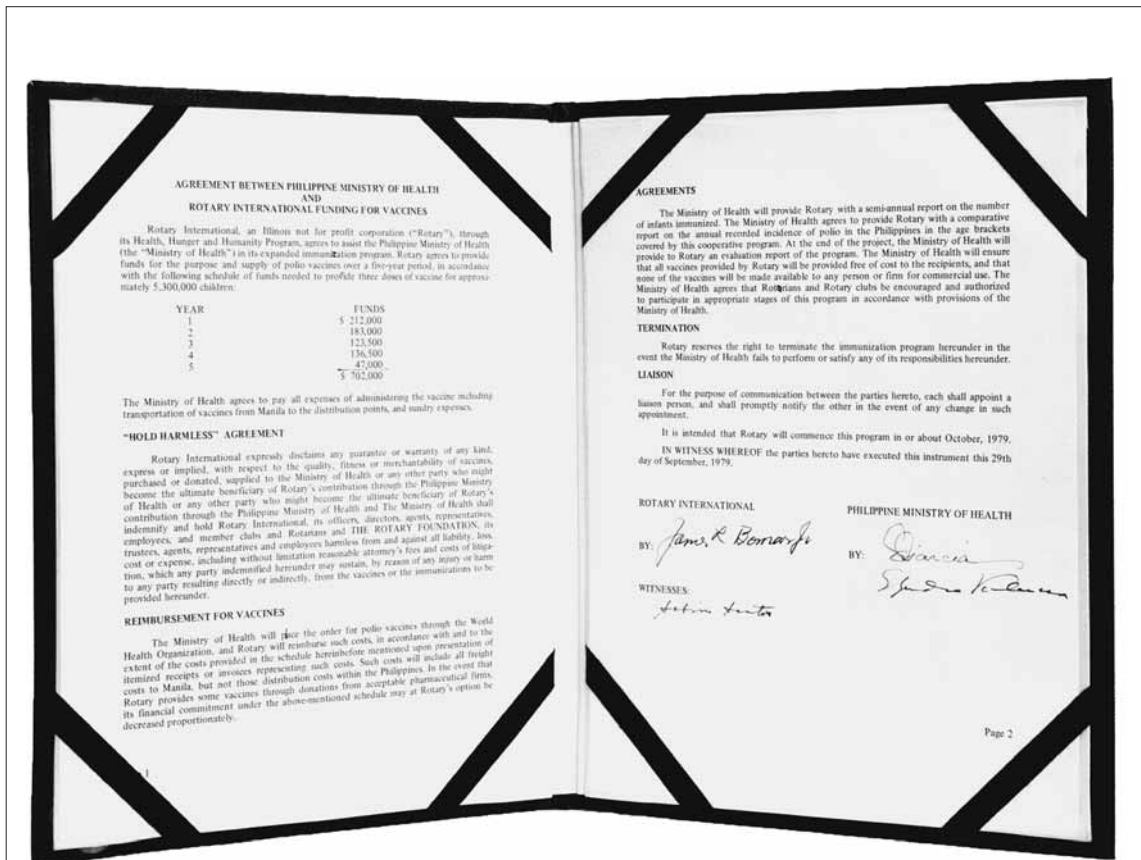 AGREEMENT BETWEEN PHILIPPINE MINISTRY OF HEALTH
AND
ROTARY INTERNATIONAL FUNDING FOR VACCINES
Rotary International, an Illinois not for profit corporation ("Rotary"), through
its Health, Hunger and Humanity Program, agrees to assist the Philippine Ministry of Health
(the "Ministry of Health") in its expanded immunization program. Rotary agrees to provide
funds for the purpose and supply of polio vaccines over a five-year period, in accordance
with the following schedule of funds needed to provide three doses of vaccine for approxi-
mately 5,300,000 children:
YEAR FUNDS
1 $ 212,000
2 183,000
3 123,500
4 136,500
5 47,000
$ 702,000
The Ministry of Health agrees to pay all expenses of administering the vaccine including
transportation of vaccines from Manila to the distribution points, and sundry expenses.
"HOLD HARMLESS" AGREEMENT
Rotary International expressly disclaims any guarantee or warranty of any kind,
express or implied, with respect to the quality, fitness or merchantability of vaccines,
purchased or donated, supplied to the Ministry of Health or any other party who might
become the ultimate beneficiary of Rotary's contribution through the Philippine Ministry
of Health or any other party who might become the ultimate beneficiary of Rotary's
contribution through the Philippine Ministry of Health and The Ministry of Health shall
indemnify and hold Rotary International, its officers, directors, agents, representatives,
employees, and member clubs and Rotarians and THE ROTARY FOUNDATION, its
trustees, agents, representatives and employees harmless from and against all liability, loss,
cost or expense, including without limitation reasonable attorney's fees and costs of litiga-
tion, which any party indemnified hereunder may sustain, by reason of any injury or harm
to any party resulting directly or indirectly, from the vaccines or the immunizations to be
provided hereunder.
REIMBURSEMENT FOR VACCINES
The Ministry of Health will place the order for polio vaccines through the World
Health Organization, and Rotary will reimburse such costs, in accordance with and to the
extent of the costs provided in the schedule hereinbefore mentioned upon presentation of
itemized receipts or invoices representing such costs. Such costs will include all freight
costs to Manila, but not those distribution costs within the Philippines. In the event that
Rotary provides some vaccines through donations from acceptable pharmaceutical firms,
its financial commitment under the above-mentioned schedule may at Rotary's option be
decreased proportionately.
1
AGREEMENTS
The Ministry of Health will provide Rotary with a semi-annual report on the number
of infants immunized. The Ministry of Health agrees to provide Rotary with a comparative
report on the annual recorded incidence of polio in the Philippines in the age brackets
covered by this cooperative program. At the end of the project, the Ministry of Health will
provide to Rotary an evaluation report of the program. The Ministry of Health will ensure
that all vaccines provided by Rotary will be provided free of cost to the recipients, and that
none of the vaccines will be made available to any person or firm for commercial use. The
Ministry of Health agrees that Rotarians and Rotary clubs be encouraged and authorized
to participate in appropriate stages of this program in accordance with provisions of the
Ministry of Health.
TERMINATION
Rotary reserves the right to terminate the immunization program hereunder in the
event the Ministry of Health fails to perform or satisfy any of its responsibilities hereunder.
LIAISON
For the purpose of communication between the parties hereto, each shall appoint a
liaison person, and shall promptly notify the other in the event of any change in such
appointment.
It is intended that Rotary will commence this program in or about October, 1979.
IN WITNESS WHEREOF the parties hereto have executed this instrument this 29th
day of September, 1979.
ROTARY INTERNATIONAL PHILIPPINE MINISTRY OF HEALTH
BY: James R Bomar Jr BY: Garcia
WITNESSES:
Page 2